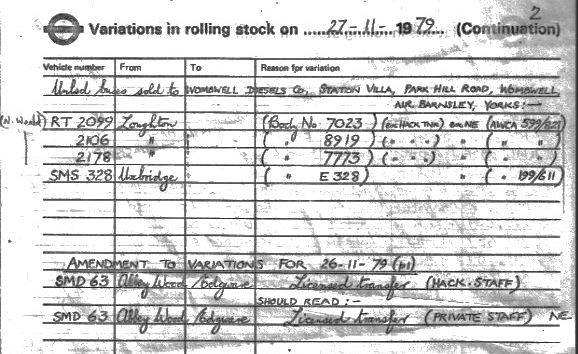 2
Variations in rolling stock on 27-11-1979 (Continuation)
Vehicle number From To Reason for variation
Unlsd buses sold to WOMBWELL DIESELS CO, STATION VILLA, PARK HILL ROAD, WOMBWELL,
AIR BARNSLEY, YORKS:—
(N. Weald) RT 2099 Loughton (Body No 7023) (ex HACK TNR) ex NE (AWCA 599/621)
2106 " ( " 8919) ( " " " ) " ( " " )
2178 " ( " 7773) ( " " " ) " ( " " )
SMS 328 Uxbridge ( " E 328) " ( " 199/611)
AMENDMENT TO VARIATIONS FOR 26-11-79 (p1)
SMD 63 Abbey Wood Edgware Licensed transfer (HACK-STAFF)
SHOULD READ:—
SMD 63 Abbey Wood Edgware Licensed transfer (PRIVATE STAFF) NE